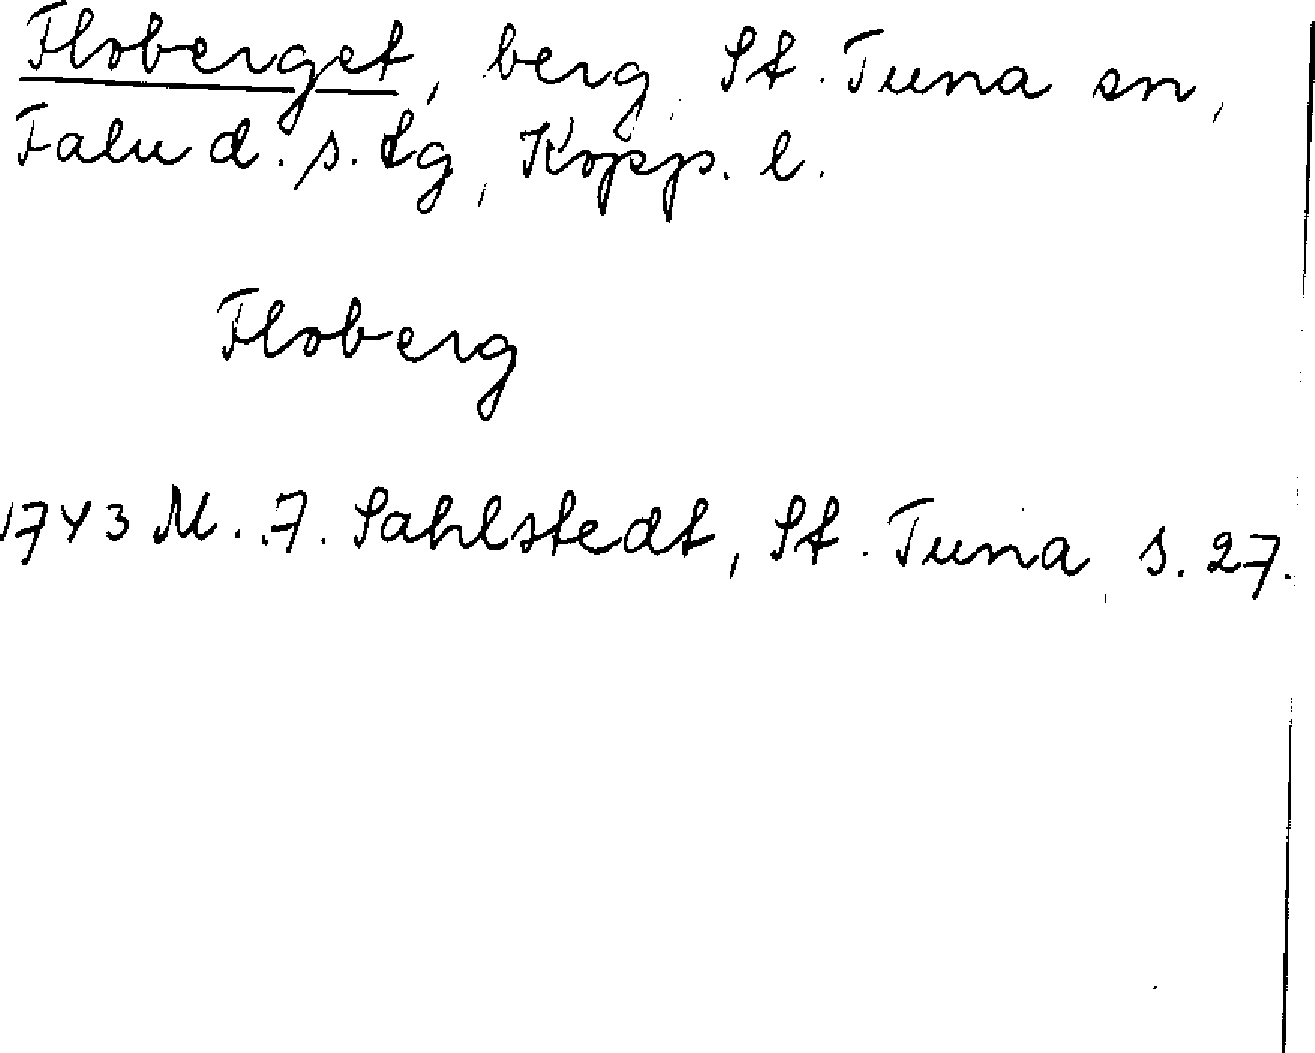 Floberget, berg, St. Tuna sn,
Falu d. s. tg, Kopp. l.
Floberg
1743 M. F. Sahlstedt, St. Tuna, s. 27.